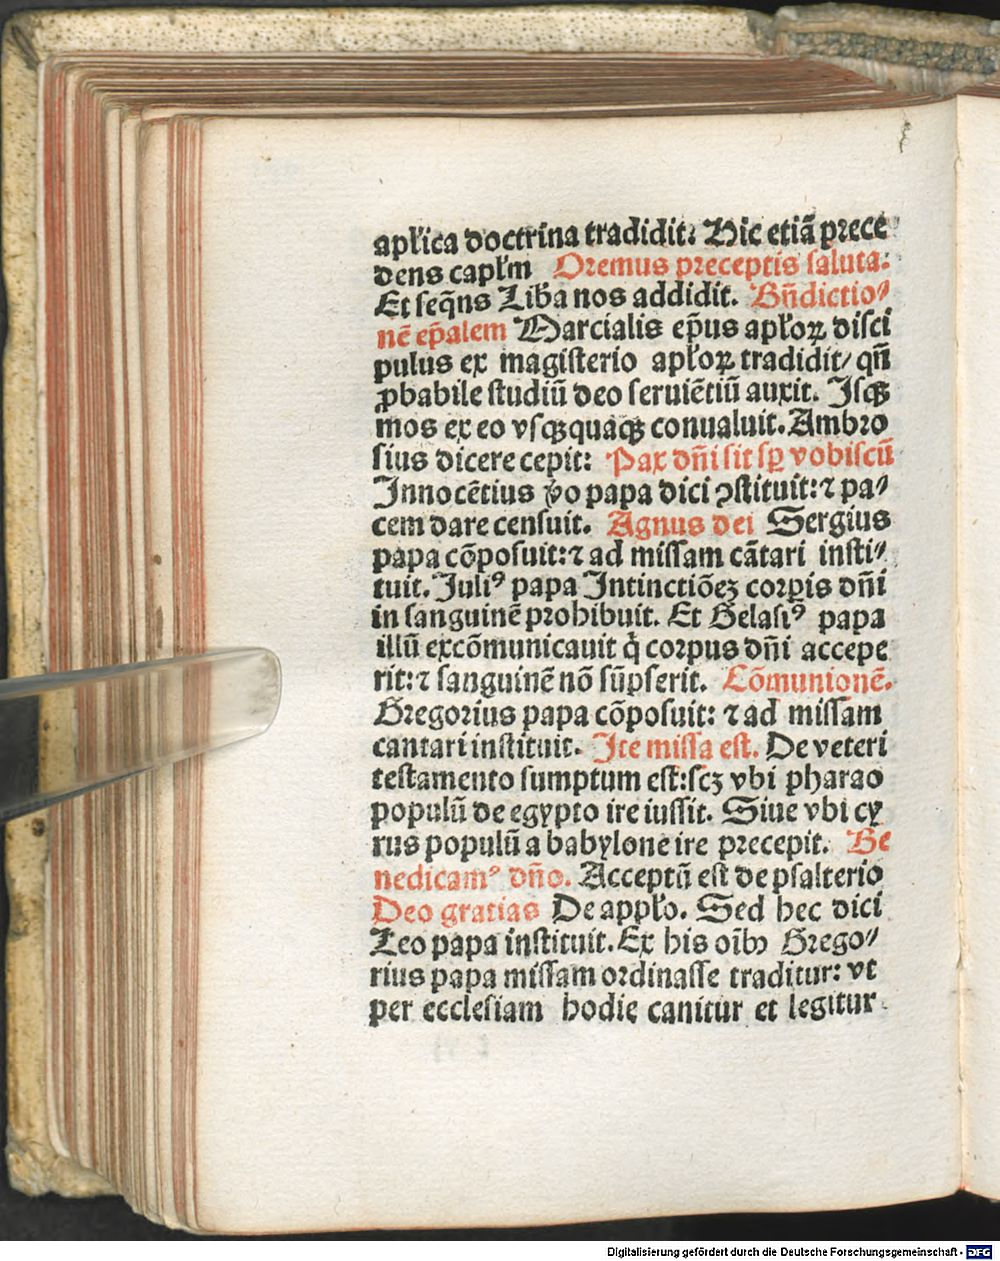 apl̄ica doctrina tradidit: Hic etiā prece
dens capl̄m Oremus preceptis saluta:
Et seq̄ns Liba nos addidit. Bn̄dictio⸗
nē ep̄alem Marcialis ep̄us apl̄oꝝ disci
pulus ex magisterio apl̄oꝝ tradidit/ qn̄
ꝓbabile studiū deo seruiētiū auxit. Isqꝫ
mos ex eo vsqꝫquaqꝫ conualuit. Ambro
sius dicere cepit: Pax dn̄i sit sꝑ vobiscū
Innocētius v̊o papa dici ꝯstituit: ⁊ pa⸗
cem dare censuit. Agnus dei Sergius
papa cōposuit: ⁊ ad missam cātari insti⸗
tuit. Juliꝰ papa Intinctiōeꝫ corꝑis dn̄i
in sanguinē prohibuit. Et Gelasiꝰ papa
illū excōmunicauit q̇ corpus dn̄i accepe
rit: ⁊ sanguinē nō sūpserit. Cōmunionē.
Gregorius papa cōposuit: ⁊ ad missam
cantari instituit. Ite missa est. De veteri
testamento sumptum est: scꝫ vbi pharao
populū de egypto ire iussit. Siue vbi cy
rus populū a babylone ire precepit. Be
nedicamꝰ dn̄o. Acceptū est de psalterio
Deo gratias De appl̄o. Sed hec dici
Leo papa instituit. Ex his oībꝫ Grego⸗
rius papa missam ordinasse traditur: vt
per ecclesiam hodie canitur et legitur
Digitalisierung gefördert durch die Deutsche Forschungsgemeinschaft - DFG